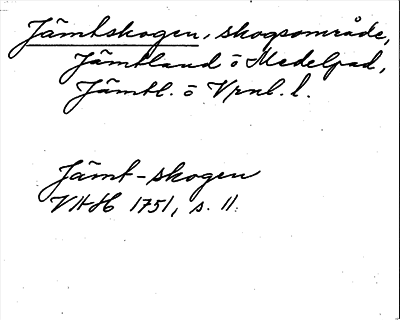 Jämtskogen, skogsområde,
Jämtland o Medelpad,
Jämtl. o Vrnl. l.
Jämt-skogen
VHH 1751, s. 11.